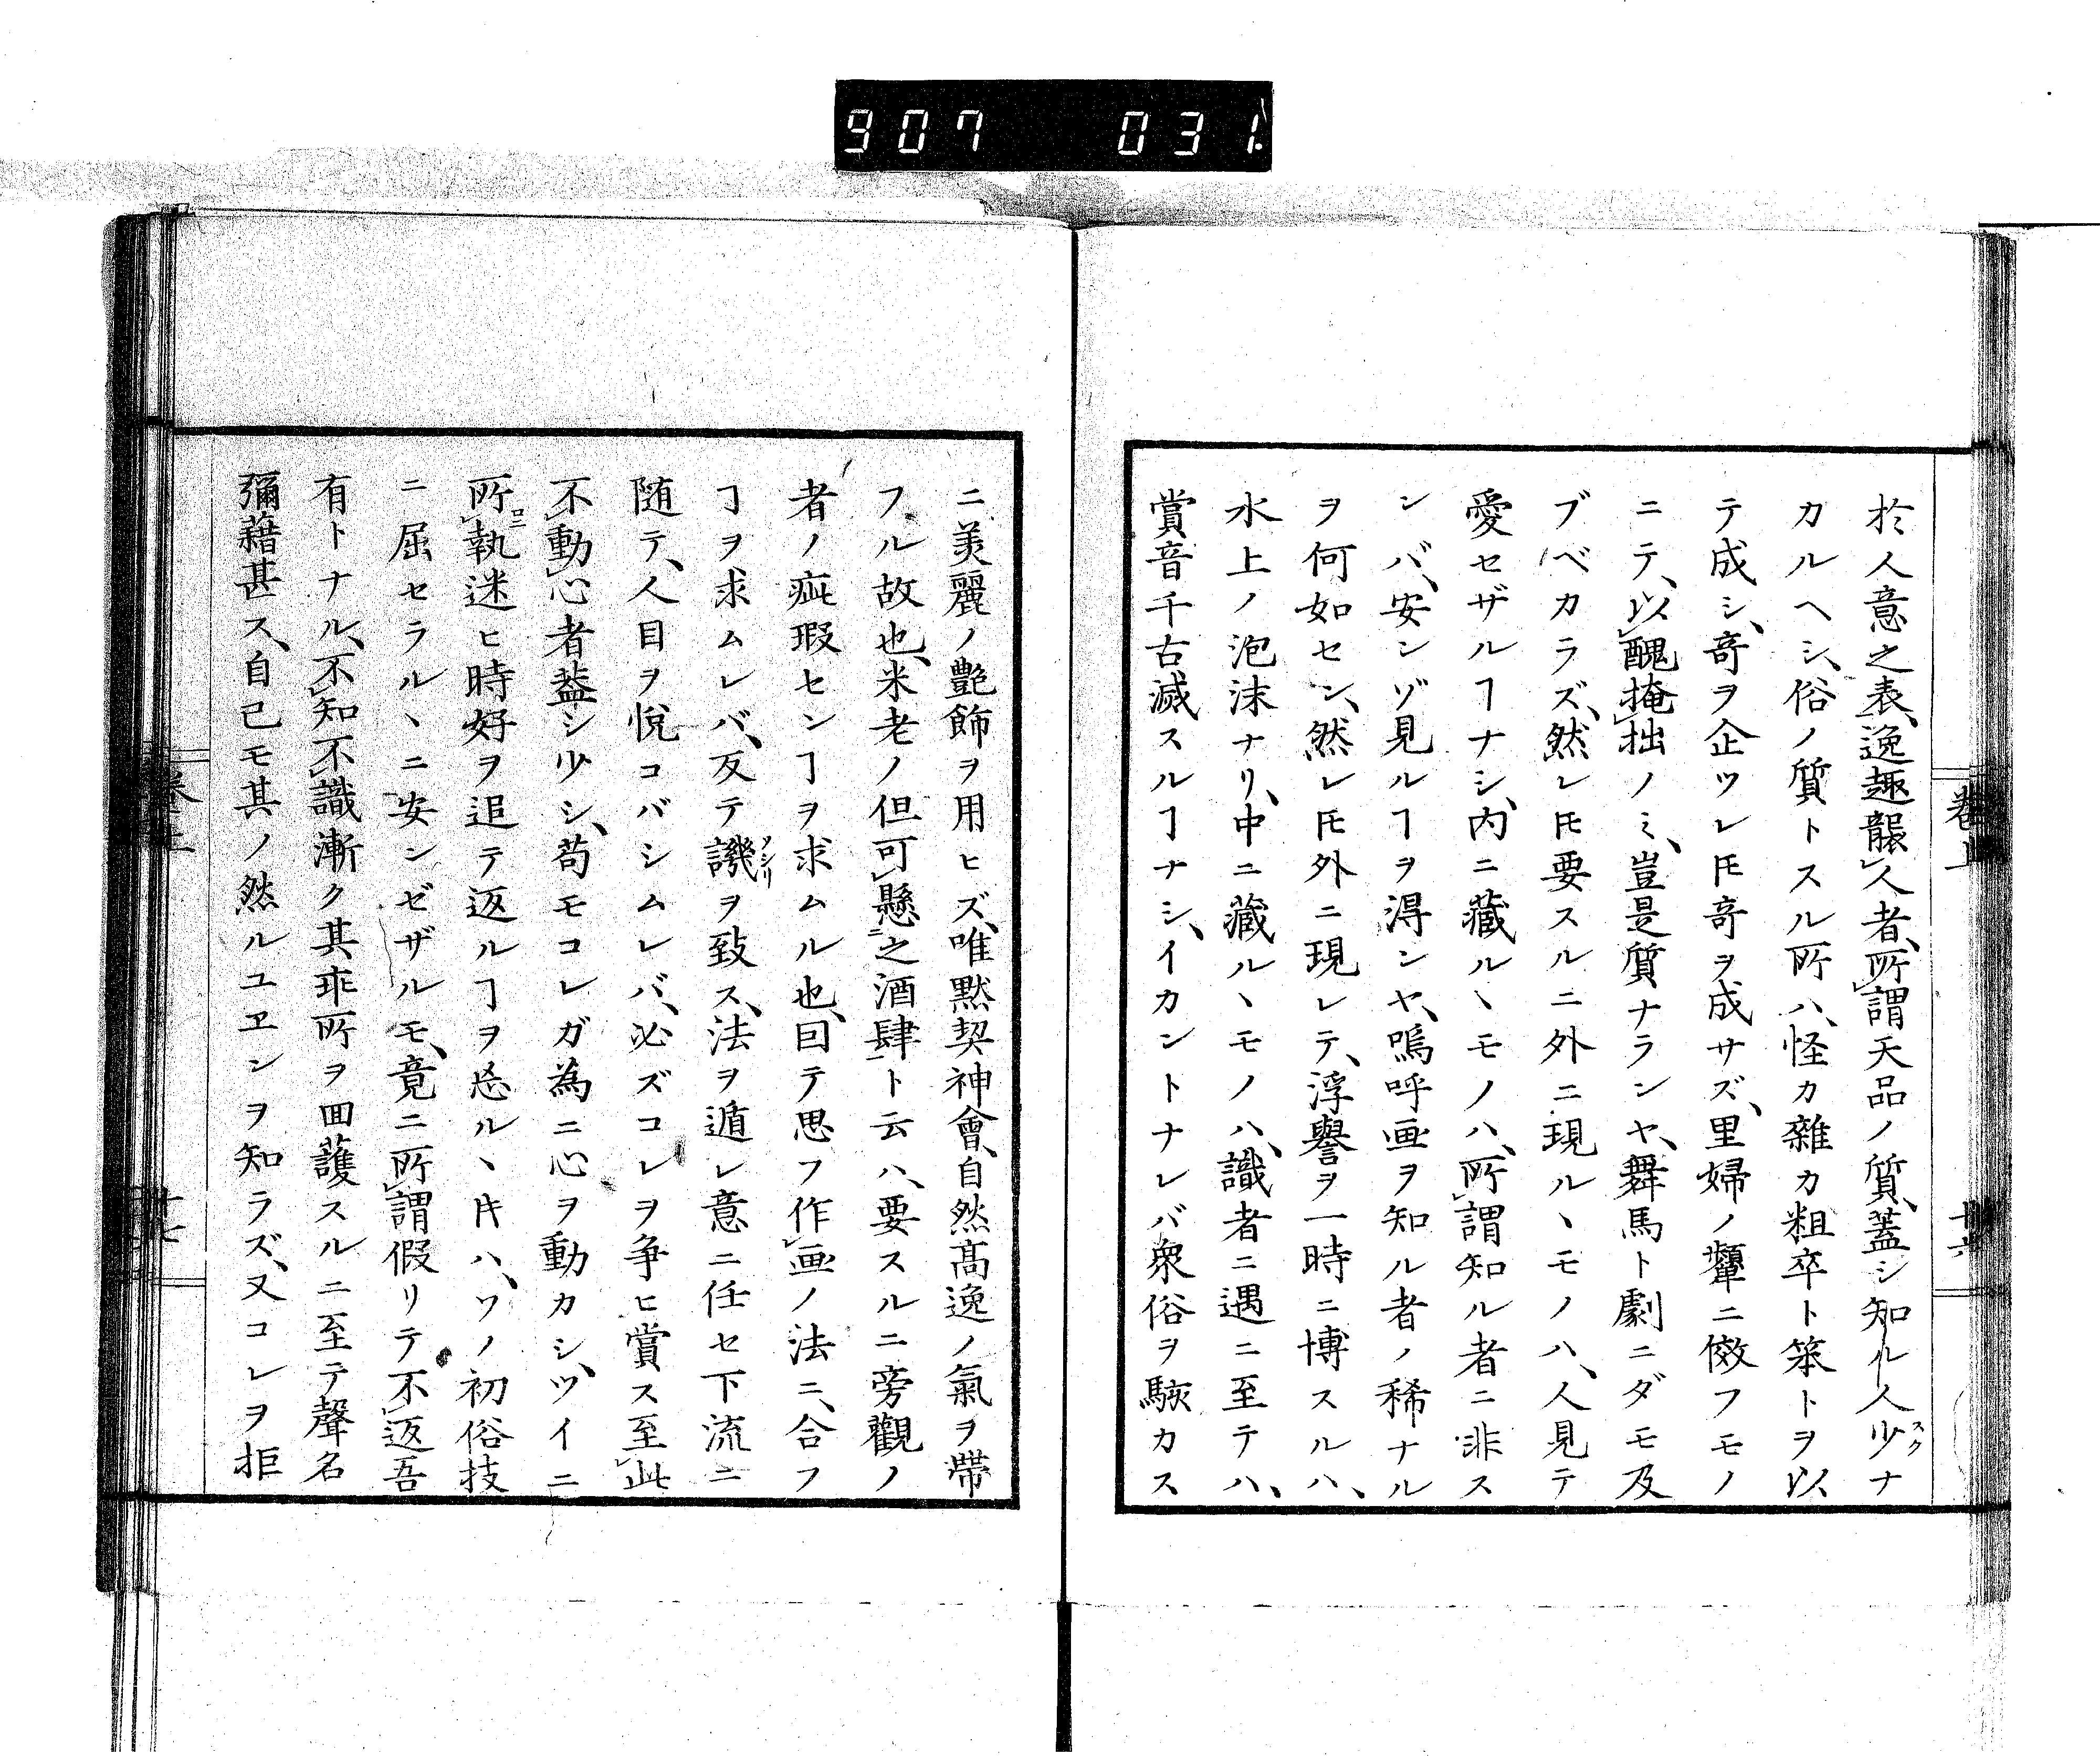 907 031
卷上 十六
於人意之表、逸趣襲人者、所謂天品ノ質、蓋シ知ル人少ナ
スク
カルヘシ、俗ノ質トスル所ハ、怪カ雜カ粗卒ト笨トヲ以
テ成シ、奇ヲ企ツレ𪜈奇ヲ成サズ、里婦ノ顰ニ傚フモノ
ニテ、以醜掩拙ノミ、豈是質ナランヤ、舞馬ト劇ニダモ及
ブベカラズ、然レ𪜈要スルニ外ニ現ルヽモノハ、人見テ
愛セザルヿナシ、内ニ藏ルヽモノハ、所謂知ル者ニ非ス
ンバ、安ンゾ見ルヿヲ淂ンヤ、嗚呼画ヲ知ル者ノ稀ナル
ヲ何如セン、然レ𪜈外ニ現レテ、浮譽ヲ一時ニ博スルハ、
水上ノ泡沫ナリ、中ニ藏ルヽモノハ、識者ニ遇ニ至テハ、
賞音千古滅スルヿナシ、イカントナレバ衆俗ヲ駭カス
ニ美麗ノ艶飾ヲ用ヒズ、唯黙契神會、自然髙逸ノ氣ヲ帶
フル故也、米老ノ但可懸之酒肆ト云ハ、要スルニ旁觀ノ
者ノ疵瑕センヿヲ求ムル也、囙テ思フ作画ノ法ニ、合フ
ヿヲ求ムレバ、反テ譏ヲ致ス、法ヲ遁レ意ニ任セ下流ニ
ソシリ
随テ、人目ヲ悅コバシムレバ、必ズコレヲ争ヒ賞ス至此
不動心者葢シ少シ、苟モコレガ為ニ心ヲ動カシ、ツイニ
所執迷ヒ時好ヲ追テ返ルヿヲ忘ルヽ𪜈ハ、ソノ初俗技
ニ屈セラルヽニ安ンゼザルモ、竟ニ所謂假リテ不返吾
有トナル、不知不識漸ク其非所ヲ回護スルニ至テ聲名
彌藉甚ス、自己モ其ノ然ルユヱンヲ知ラズ、又コレヲ拒
卷上 十七